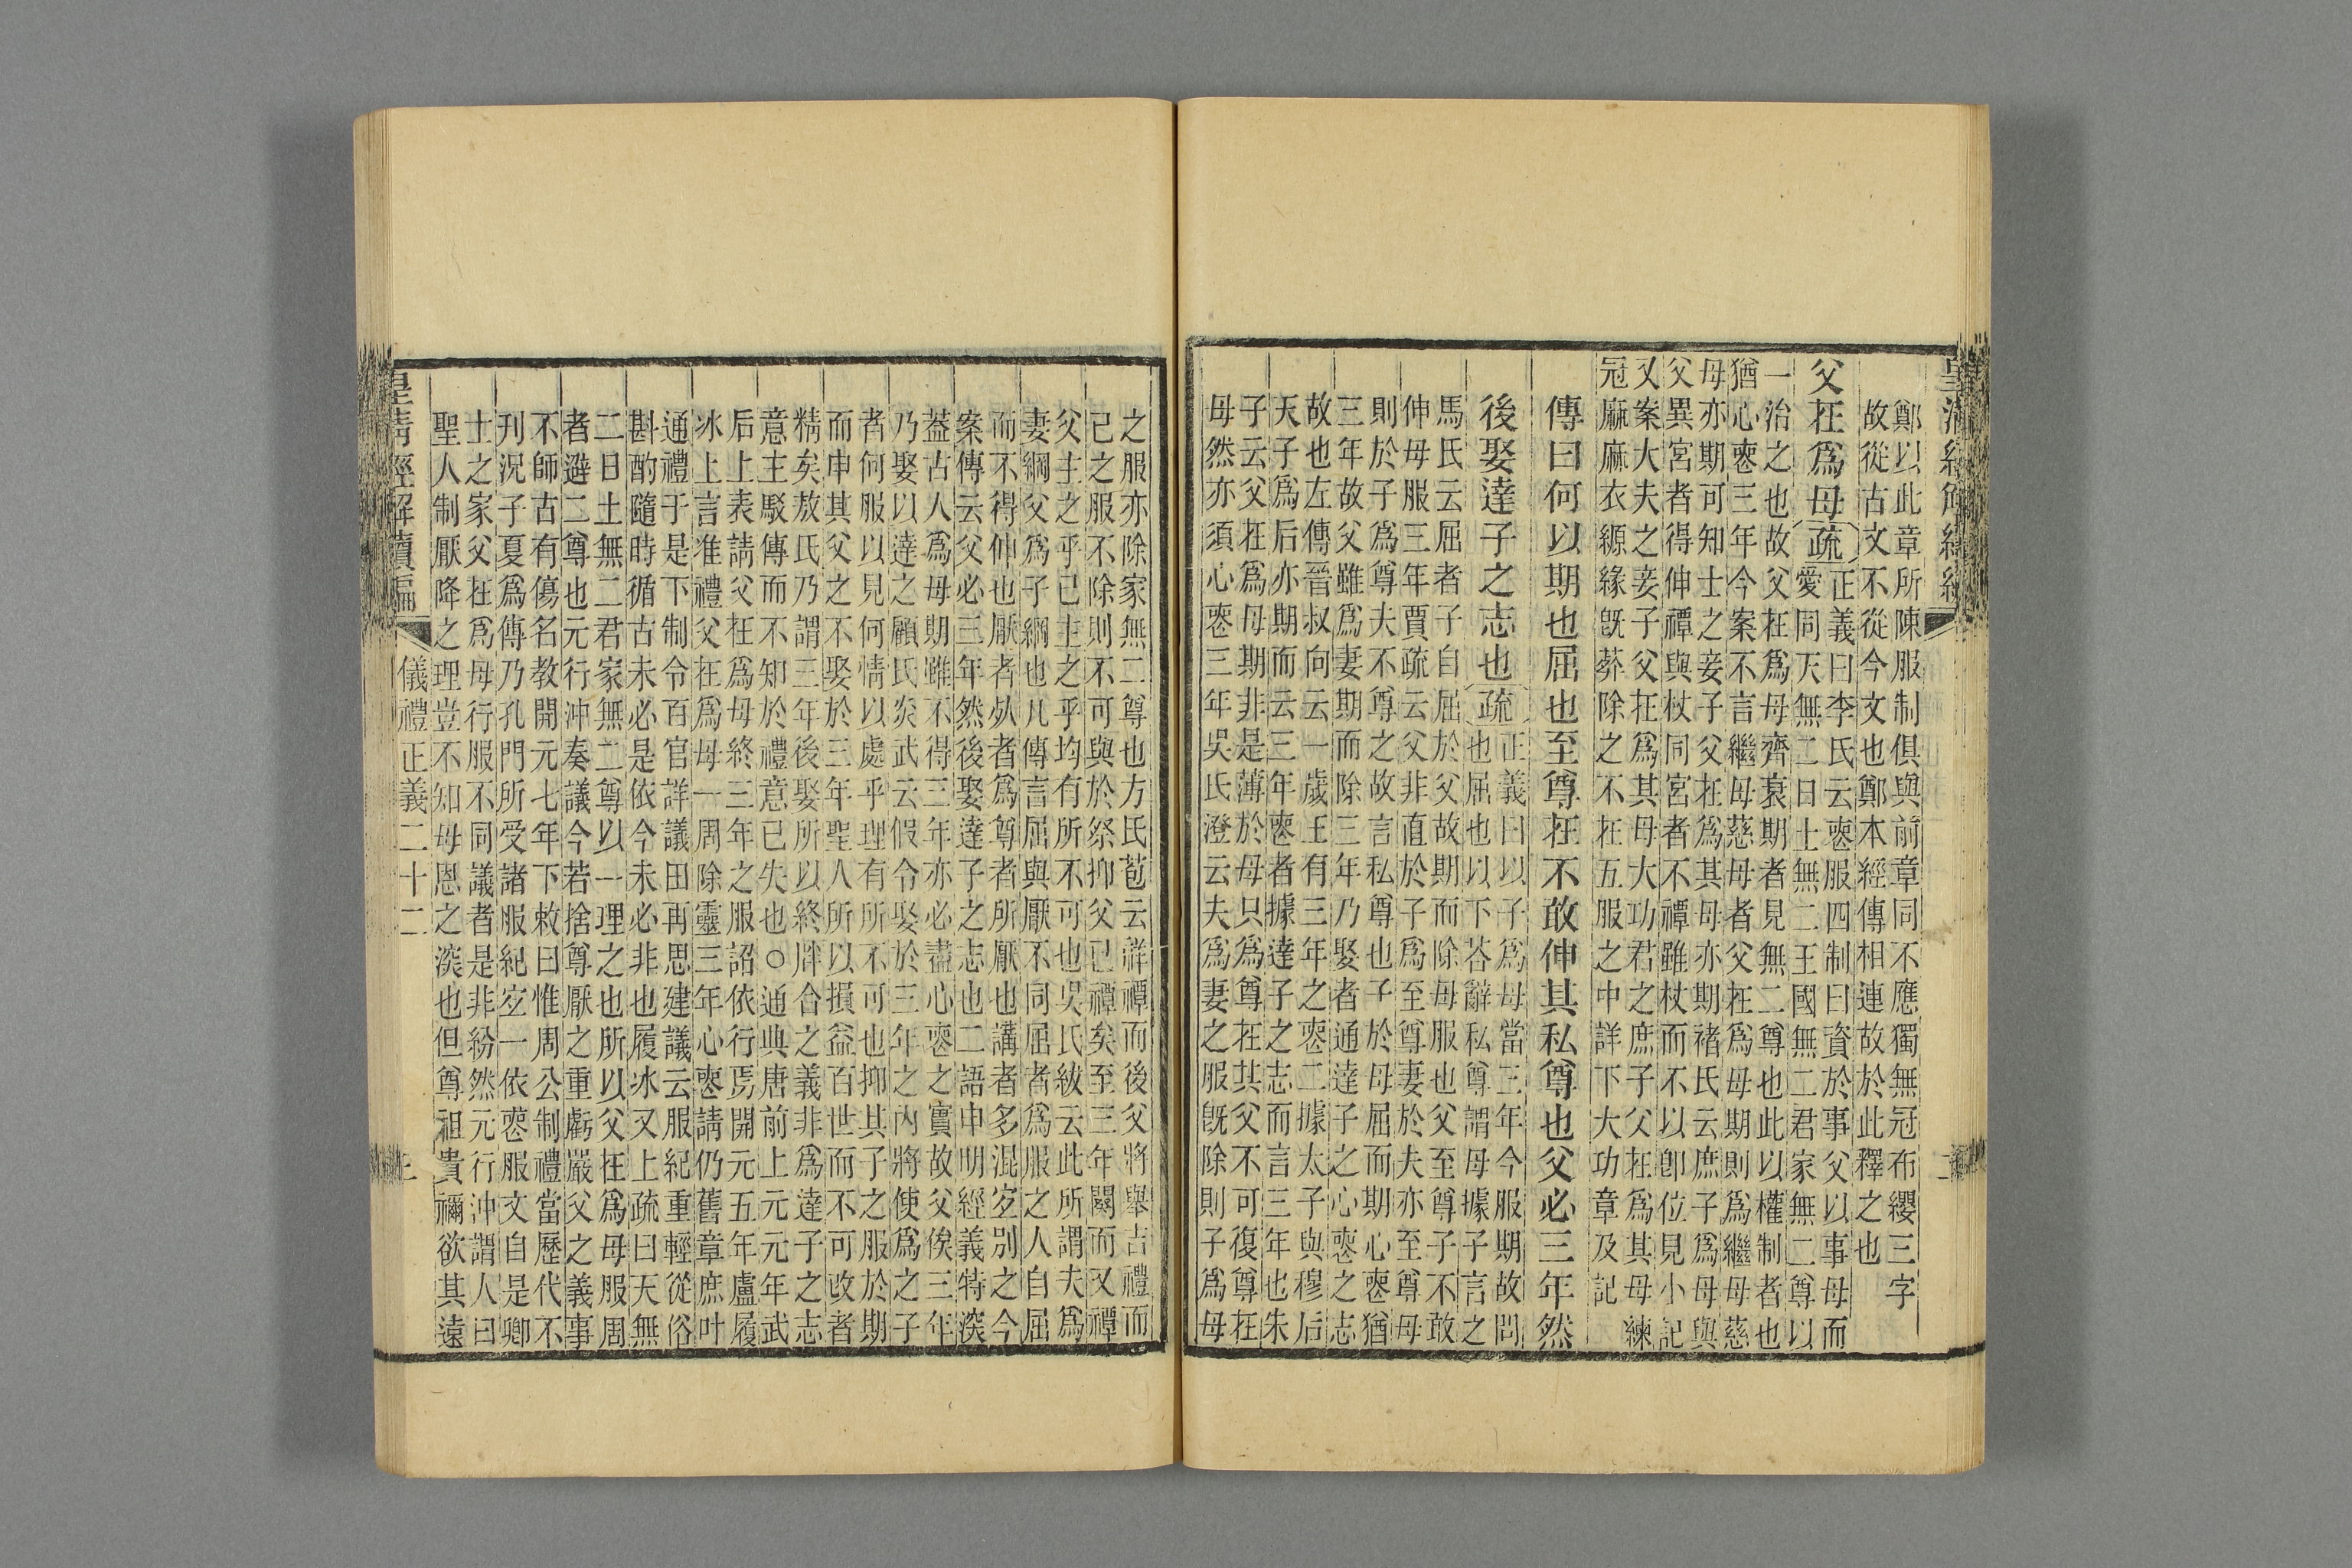 鄭以此章所陳服制俱與前章同不應獨無冠布纓三字
故從古文不從今文也鄭本經傳相連故於此釋之也
父在爲母疏
正義曰李氏云喪服四制曰資於事父以事母而
愛同天無二日土無二王國無二君家無二尊以
一治之也故父在爲母齊衰期者見無二尊也此以權制者也
猶心喪三年今案不言繼母慈母者父在爲母期則爲繼母慈
母亦期可知士之妾子父在爲其母亦期褚氏云庶子爲母與
父異宮者得伸禫與杖同宮者不禫雖杖而不以卽位見小記
又案大夫之妾子父在爲其母大功君之庶子父在爲其母練
冠麻麻衣縓緣旣葬除之不在五服之中詳下大功章及記
傳曰何以期也屈也至尊在不敢伸其私尊也父必三年然
後娶達子之志也疏
正義曰以子爲母當三年今服期故問
也屈也以下荅辭私尊謂母據子言之
馬氏云屈者子自屈於父故期而除母服也父至尊子不敢
伸母服三年賈疏云父非直於子爲至尊妻於夫亦至尊母
則於子爲尊夫不尊之故言私尊也子於母屈而期心喪猶
三年故父雖爲妻期而除三年乃娶者通達子之心喪之志
故也左傳晉叔向云一歲王有三年之喪二據太子與穆后
天子爲后亦期而云三年喪者據達子之志而言三年也朱
子云父在爲母期非是薄於母只爲尊在其父不可復尊在
母然亦須心喪三年吳氏澄云夫爲妻之服旣除則子爲母
之服亦除家無二尊也方氏苞云祥禫而後父將舉吉禮而
己之服不除則不可與於祭抑父已禫矣至三年闋而又禫
父主之乎己主之乎均有所不可也吳氏紱云此所謂夫爲
妻綱父爲子綱也凡傳言屈與厭不同屈者爲服之人自屈
而不得伸也厭者於者爲尊者所厭也講者多混宐別之今
案傳云父必三年然後娶達子之志也二語申明經義特深
葢古人爲母期雖不得三年亦必盡心喪之實故父俟三年
乃娶以達之顧氏炎武云假令娶於三年之內將使爲之子
者何服以見何情以處乎理有所不可也抑其子之服於期
而申其父之不娶於三年聖人所以損益百世而不可改者
精矣敖氏乃謂三年後娶所以終牉合之義非爲達子之志
意主駁傳而不知於禮意已失也○通典唐前上元元年武
后上表請父在爲母終三年之服詔依行焉開元五年盧履
冰上言准禮父在爲母一周除靈三年心喪請仍舊章庶叶
通禮于是下制令百官詳議田再思建議云服紀重輕從俗
斟酌隨時循古未必是依今未必非也履冰又上疏曰天無
二日土無二君家無二尊以一理之也所以父在爲母服周
者避二尊也元行沖奏議今若捨尊厭之重虧嚴父之義事
不師古有傷名教開元七年下敕曰惟周公制禮當歷代不
刋況子夏爲傳乃孔門所受諸服紀宐一依喪服文自是卿
士之家父在爲母行服不同議者是非紛然元行沖謂人曰
聖人制厭降之理豈不知母恩之深也但尊祖貴禰欲其遠
皇清經解續編
儀禮正義二十二